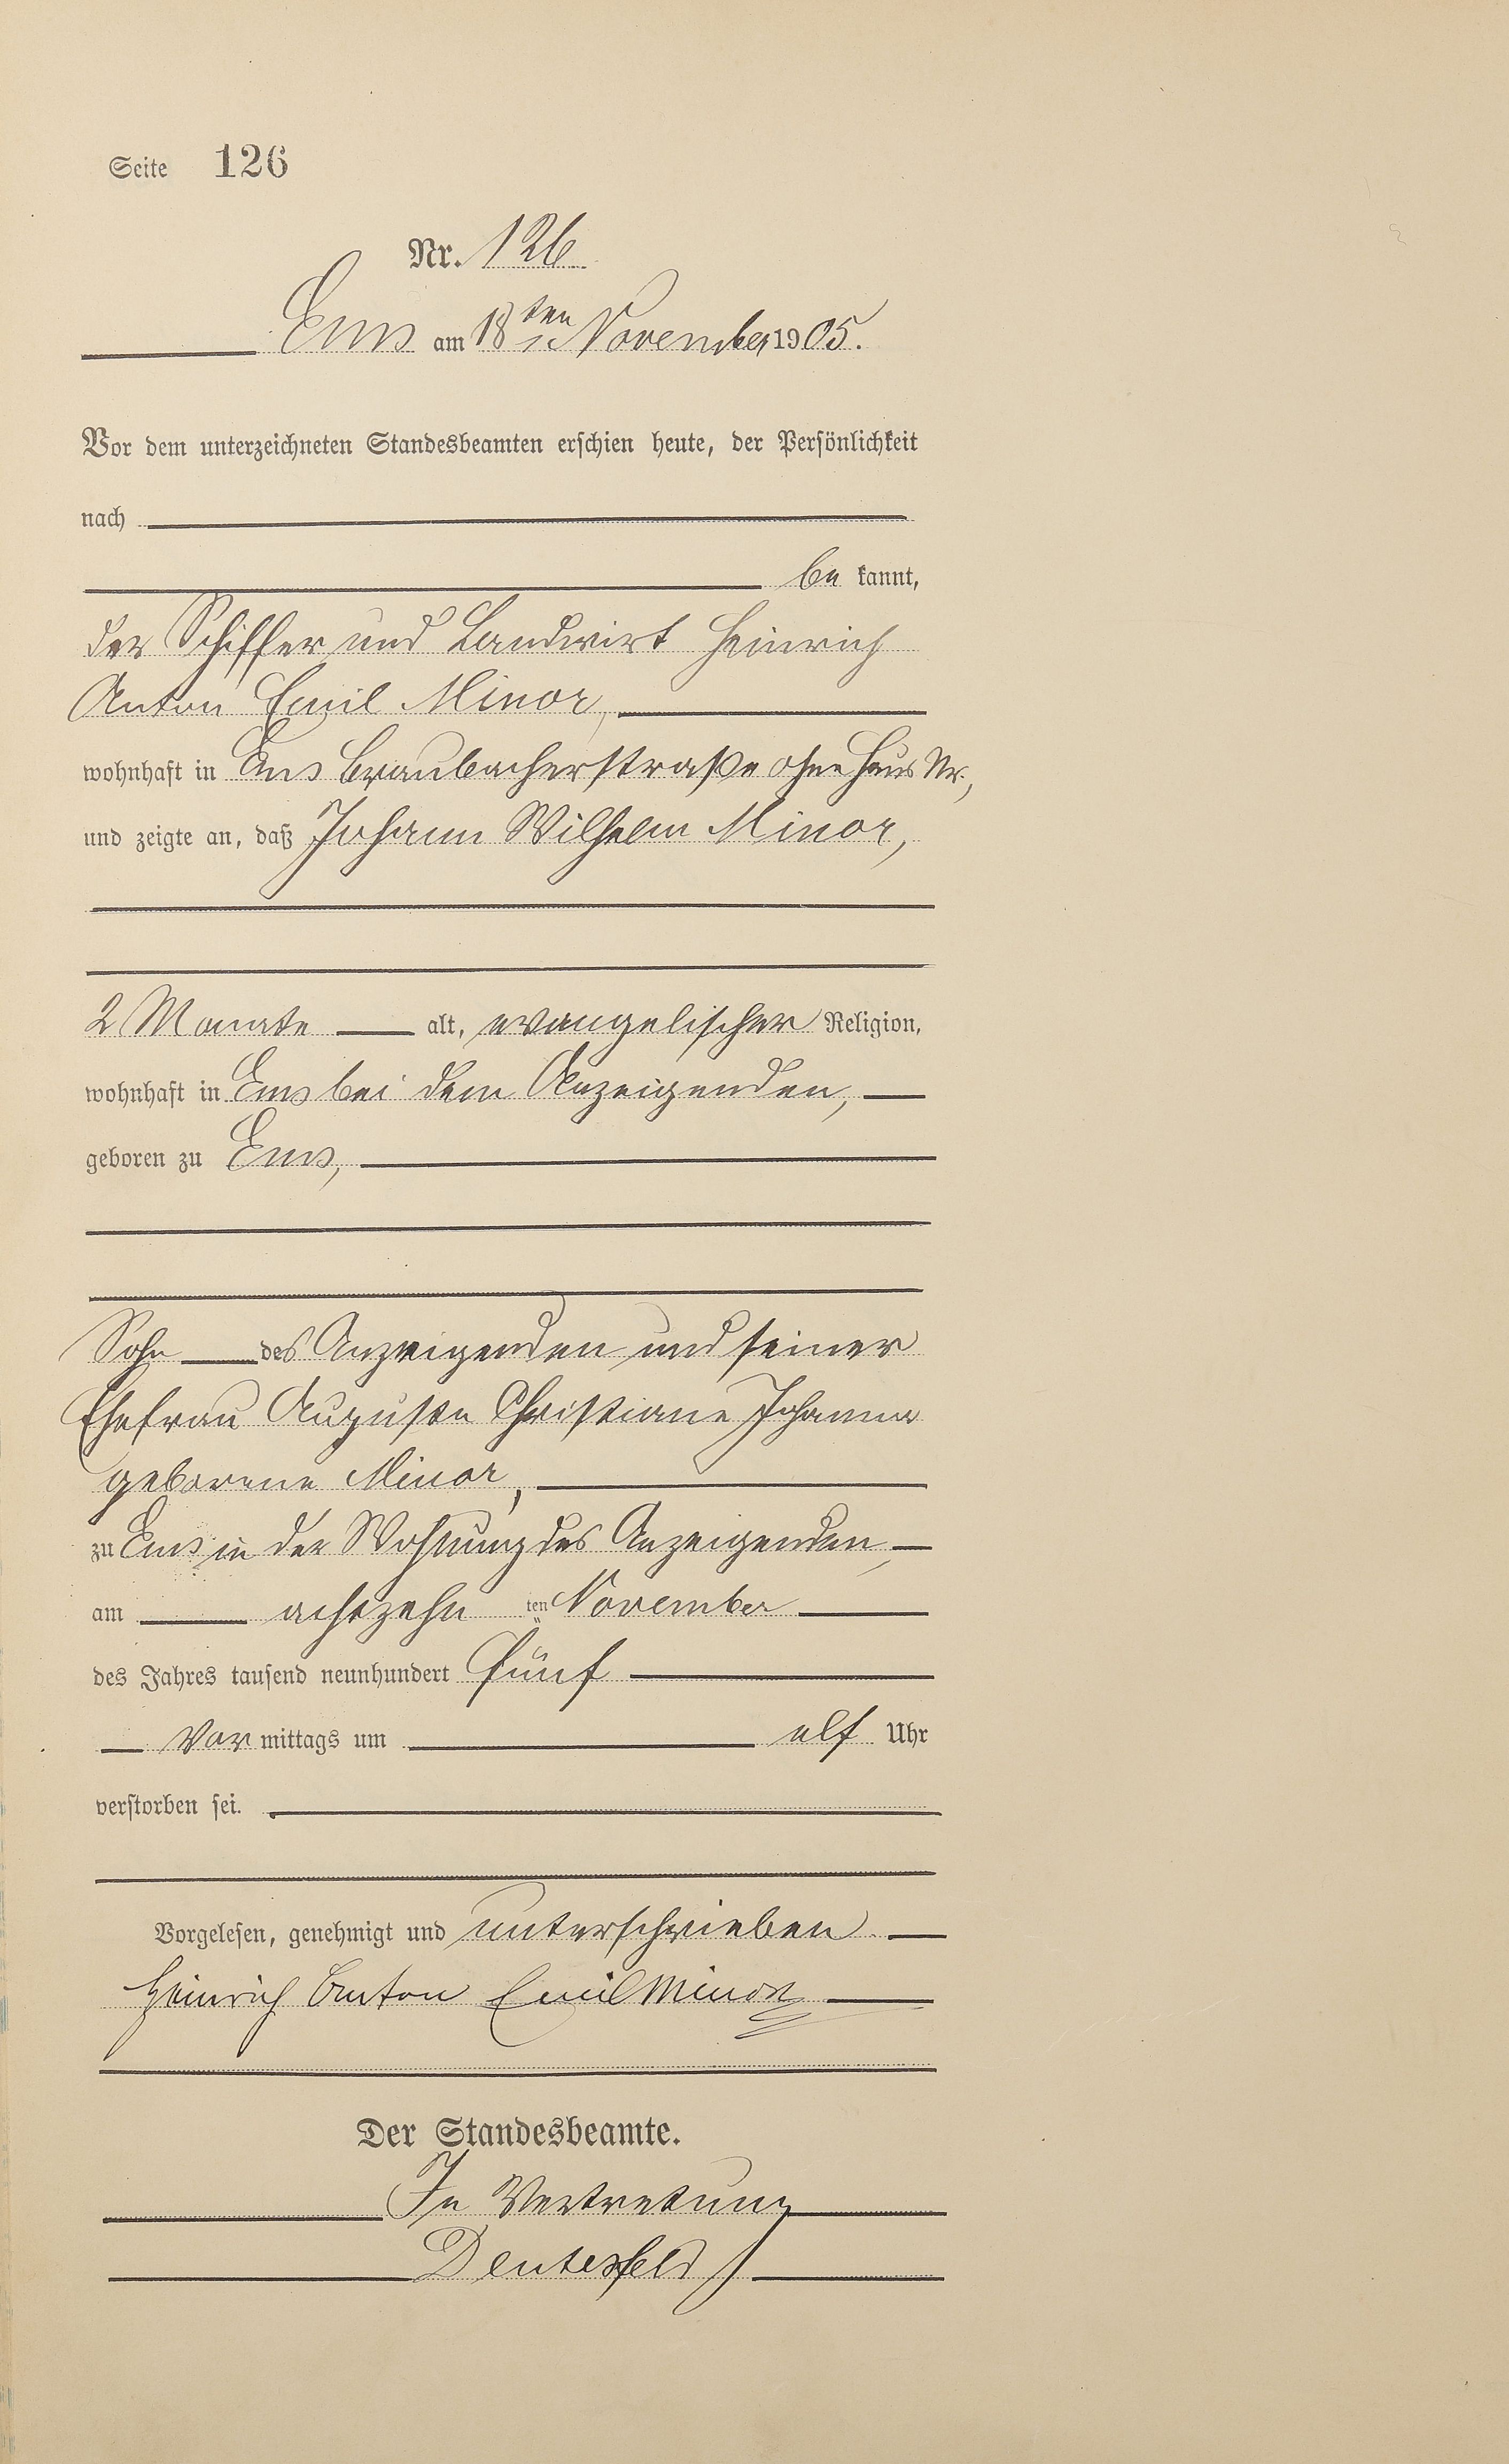 Seite 126
Nr. 126
Ems am 18ten November 1905.
Vor dem unterzeichneten Standesbeamten erschien heute, der Persönlichkeit
nach
be kannt,
der Schiffer und Landwirt Heinrich
Anton Emil Minor,
wohnhaft in Ems Braubacherstraße ohne Haus Nr.,
und zeigte an, daß Johann Wilhelm Minor,
2 Monate alt, evangelischer Religion,
wohnhaft in Ems bei dem Anzeigenden,
geboren zu Ems,
Sohn des Anzeigenden und seiner
Ehefrau Auguste Christiane Johanna
geborene Minor,
zu Ems in der Wohnung des Anzeigenden,
am achtzehn ten November
des Jahres tausend neunhundert fünf
Vor mittags um elf Uhr
verstorben sei.
Vorgelesen, genehmigt und unterschrieben
Heinrich Anton Emil Minor
Der Standesbeamte.
In Vertretung